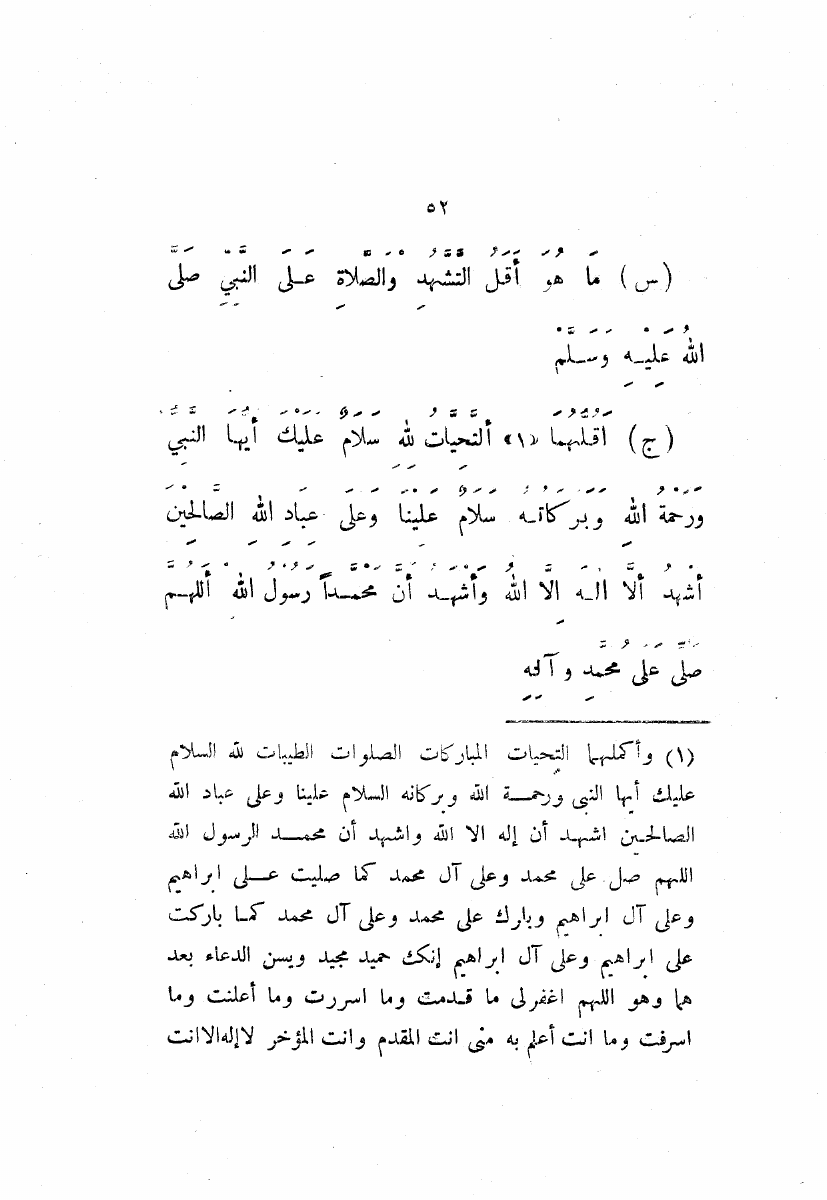 ٥٢
(س) مَا هُوَ أَقَلُّ التَّشَهُّدِ وَالصَّلَاةِ عَلَى النَّبِيِّ صَلَّى
اللهُ عَلَيْهِ وَسَلَّمَ
(ج) أَقَلُّهُمَا «١» أَلتَّحِيَّاتُ لِلهِ سَلَامٌ عَلَيْكَ أَيُّهَا النَّبِيُّ
وَرَحْمَةُ اللهِ وَبَرَكَاتُهُ سَلَامٌ عَلَيْنَا وَعَلَى عِبَادِ اللهِ الصَّالِحِيْنَ
أَشْهَدُ أَلَّا الَهَ الَّا اللهُ وَأَشْهَدُ أَنَّ مُحَمَّدًا رَسُولُ اللهِ أَللَّهُمَّ
صَلِّى عَلَى مُحَمَّدٍ وَآلِهِ
(١) وأكملهما التحيات المباركات الصلوات الطيبات لله السلام
عليك أيها النبى ورحمة الله وبركاته السلام علينا وعلى عباد الله
الصالحين اشهد أن إله الا الله واشهد أن محمد الرسول الله
اللهم صل على محمد وعلى آل محمد كما صليت على ابراهيم
وعلى آل ابراهيم وبارك على محمد وعلى آل محمد كما باركت
على ابراهيم وعلى آل ابراهيم إنك حميد مجيد ويسن الدعاء بعد
هما وهو اللهم اغفرلى ما قدمت وما اسررت وما أعلنت وما
اسرفت وما انت أعلم به منى انت المقدم وانت المؤخر لاإله الاانت